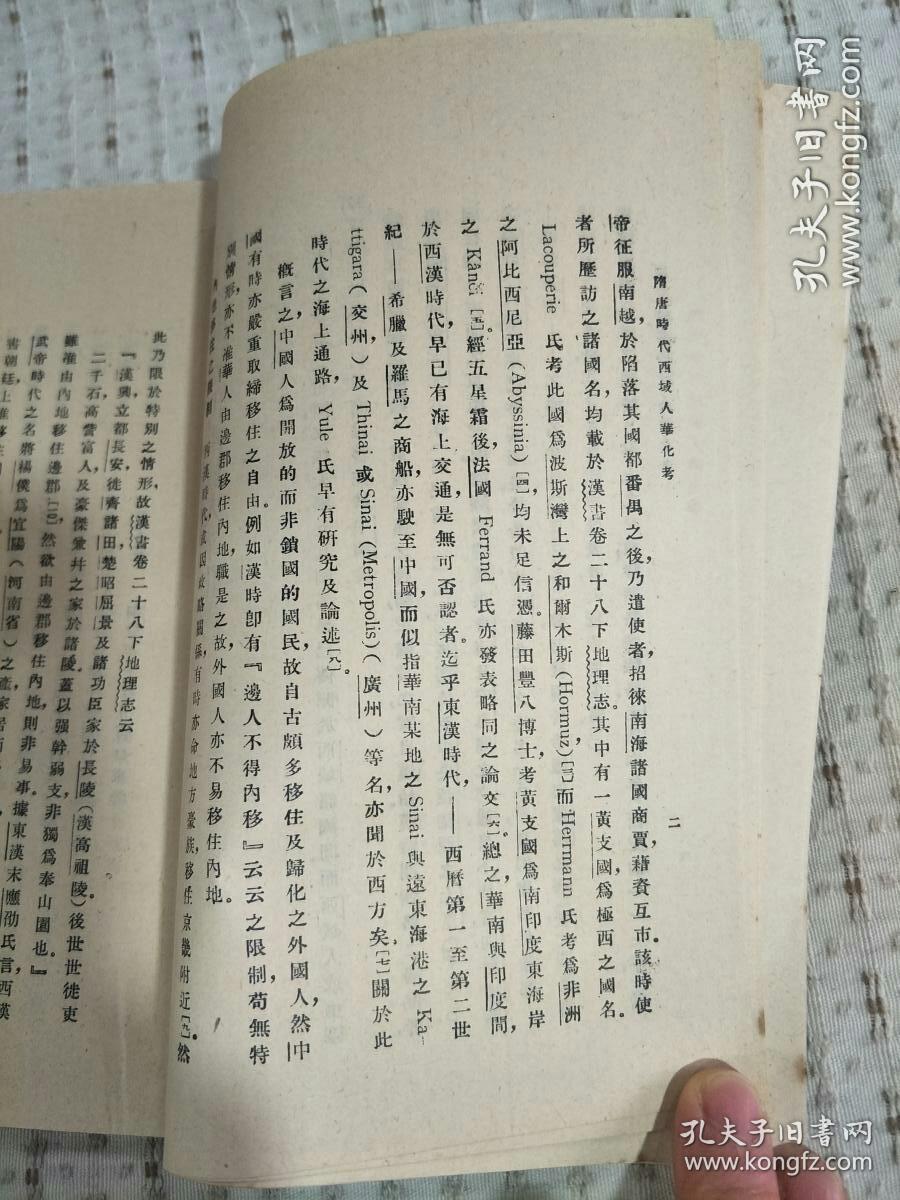 隋唐時代西域人華化考
二
帝征服南越,於陷落其國都番禺之後,乃遣使者,招徠南海諸國商賈,藉資互市。該時使
者所歷訪之諸國名,均載於漢書卷二十八下地理志。其中有一黃支國,爲極西之國名。
Lacouperie 氏考此國爲波斯灣上之和爾木斯(Hormuz)〔三〕,而 Herrmann 氏考爲非洲
之阿比西尼亞(Abyssinia)〔四〕,均未足信憑。藤田豐八博士考黃支國爲南印度東海岸
之 Kânči〔五〕。經五星霜後,法國 Ferrand 氏亦發表略同之論文〔六〕。總之,華南與印度間,
於西漢時代,早已有海上交通,是無可否認者。迄乎東漢時代——西曆第一至第二世
紀——希臘及羅馬之商船,亦駛至中國,而似指華南某地之 Sinai 與遠東海港之 Ka-
ttigara(交州)及 Thinai 或 Sinai (Metropolis)(廣州)等名,亦聞於西方矣〔七〕。關於此
時代之海上通路,Yule 氏早有研究及論述〔八〕。
概言之,中國人爲開放的而非鎖國的國民,故自古頗多移住及歸化之外國人,然中
國有時亦嚴重取締移住之自由。例如漢時卽有『邊人不得內移』云云之限制,苟無特
別情形,亦不准華人由邊郡移住內地,職是之故,外國人亦不易移住內地。
兩漢時代,或因政略關係,有時亦命地方豪族移住京畿附近〔九〕。然
此乃限於特別之情形,故漢書卷二十八下地理志云
『漢興,立都長安,徙齊諸田,楚昭屈景及諸功臣家於長陵(漢高祖陵)。後世世徙吏
二千石高訾富人及豪傑兼幷之家於諸陵,蓋以强幹弱支,非獨爲奉山園也。』
雖准由內地移住邊郡〔一〇〕,然欲由邊郡移住內地,則非易事。據東漢末應劭氏言,西漢
武帝時代之名將楊僕爲宜陽(河南省)之產,家居